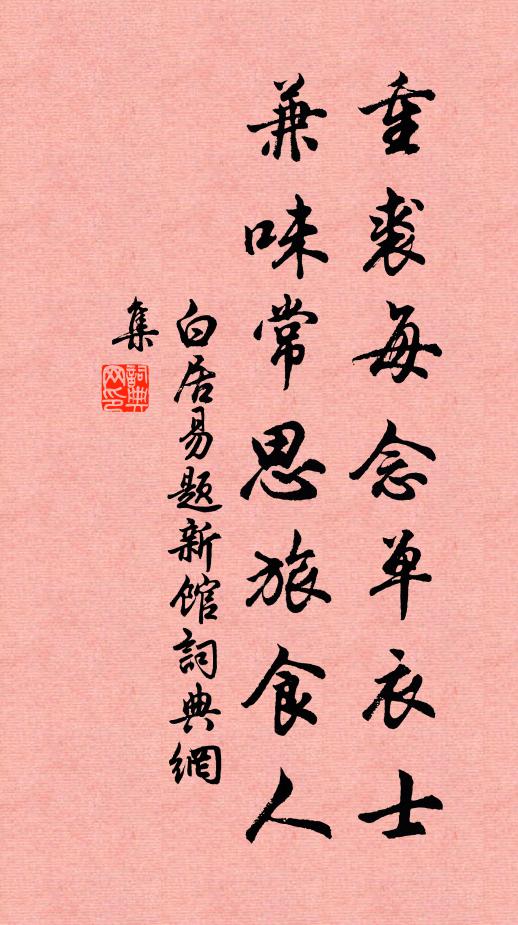 重裘每念单衣士
兼味常思旅食人
白居易题新馆詞典網
集
詞典网印